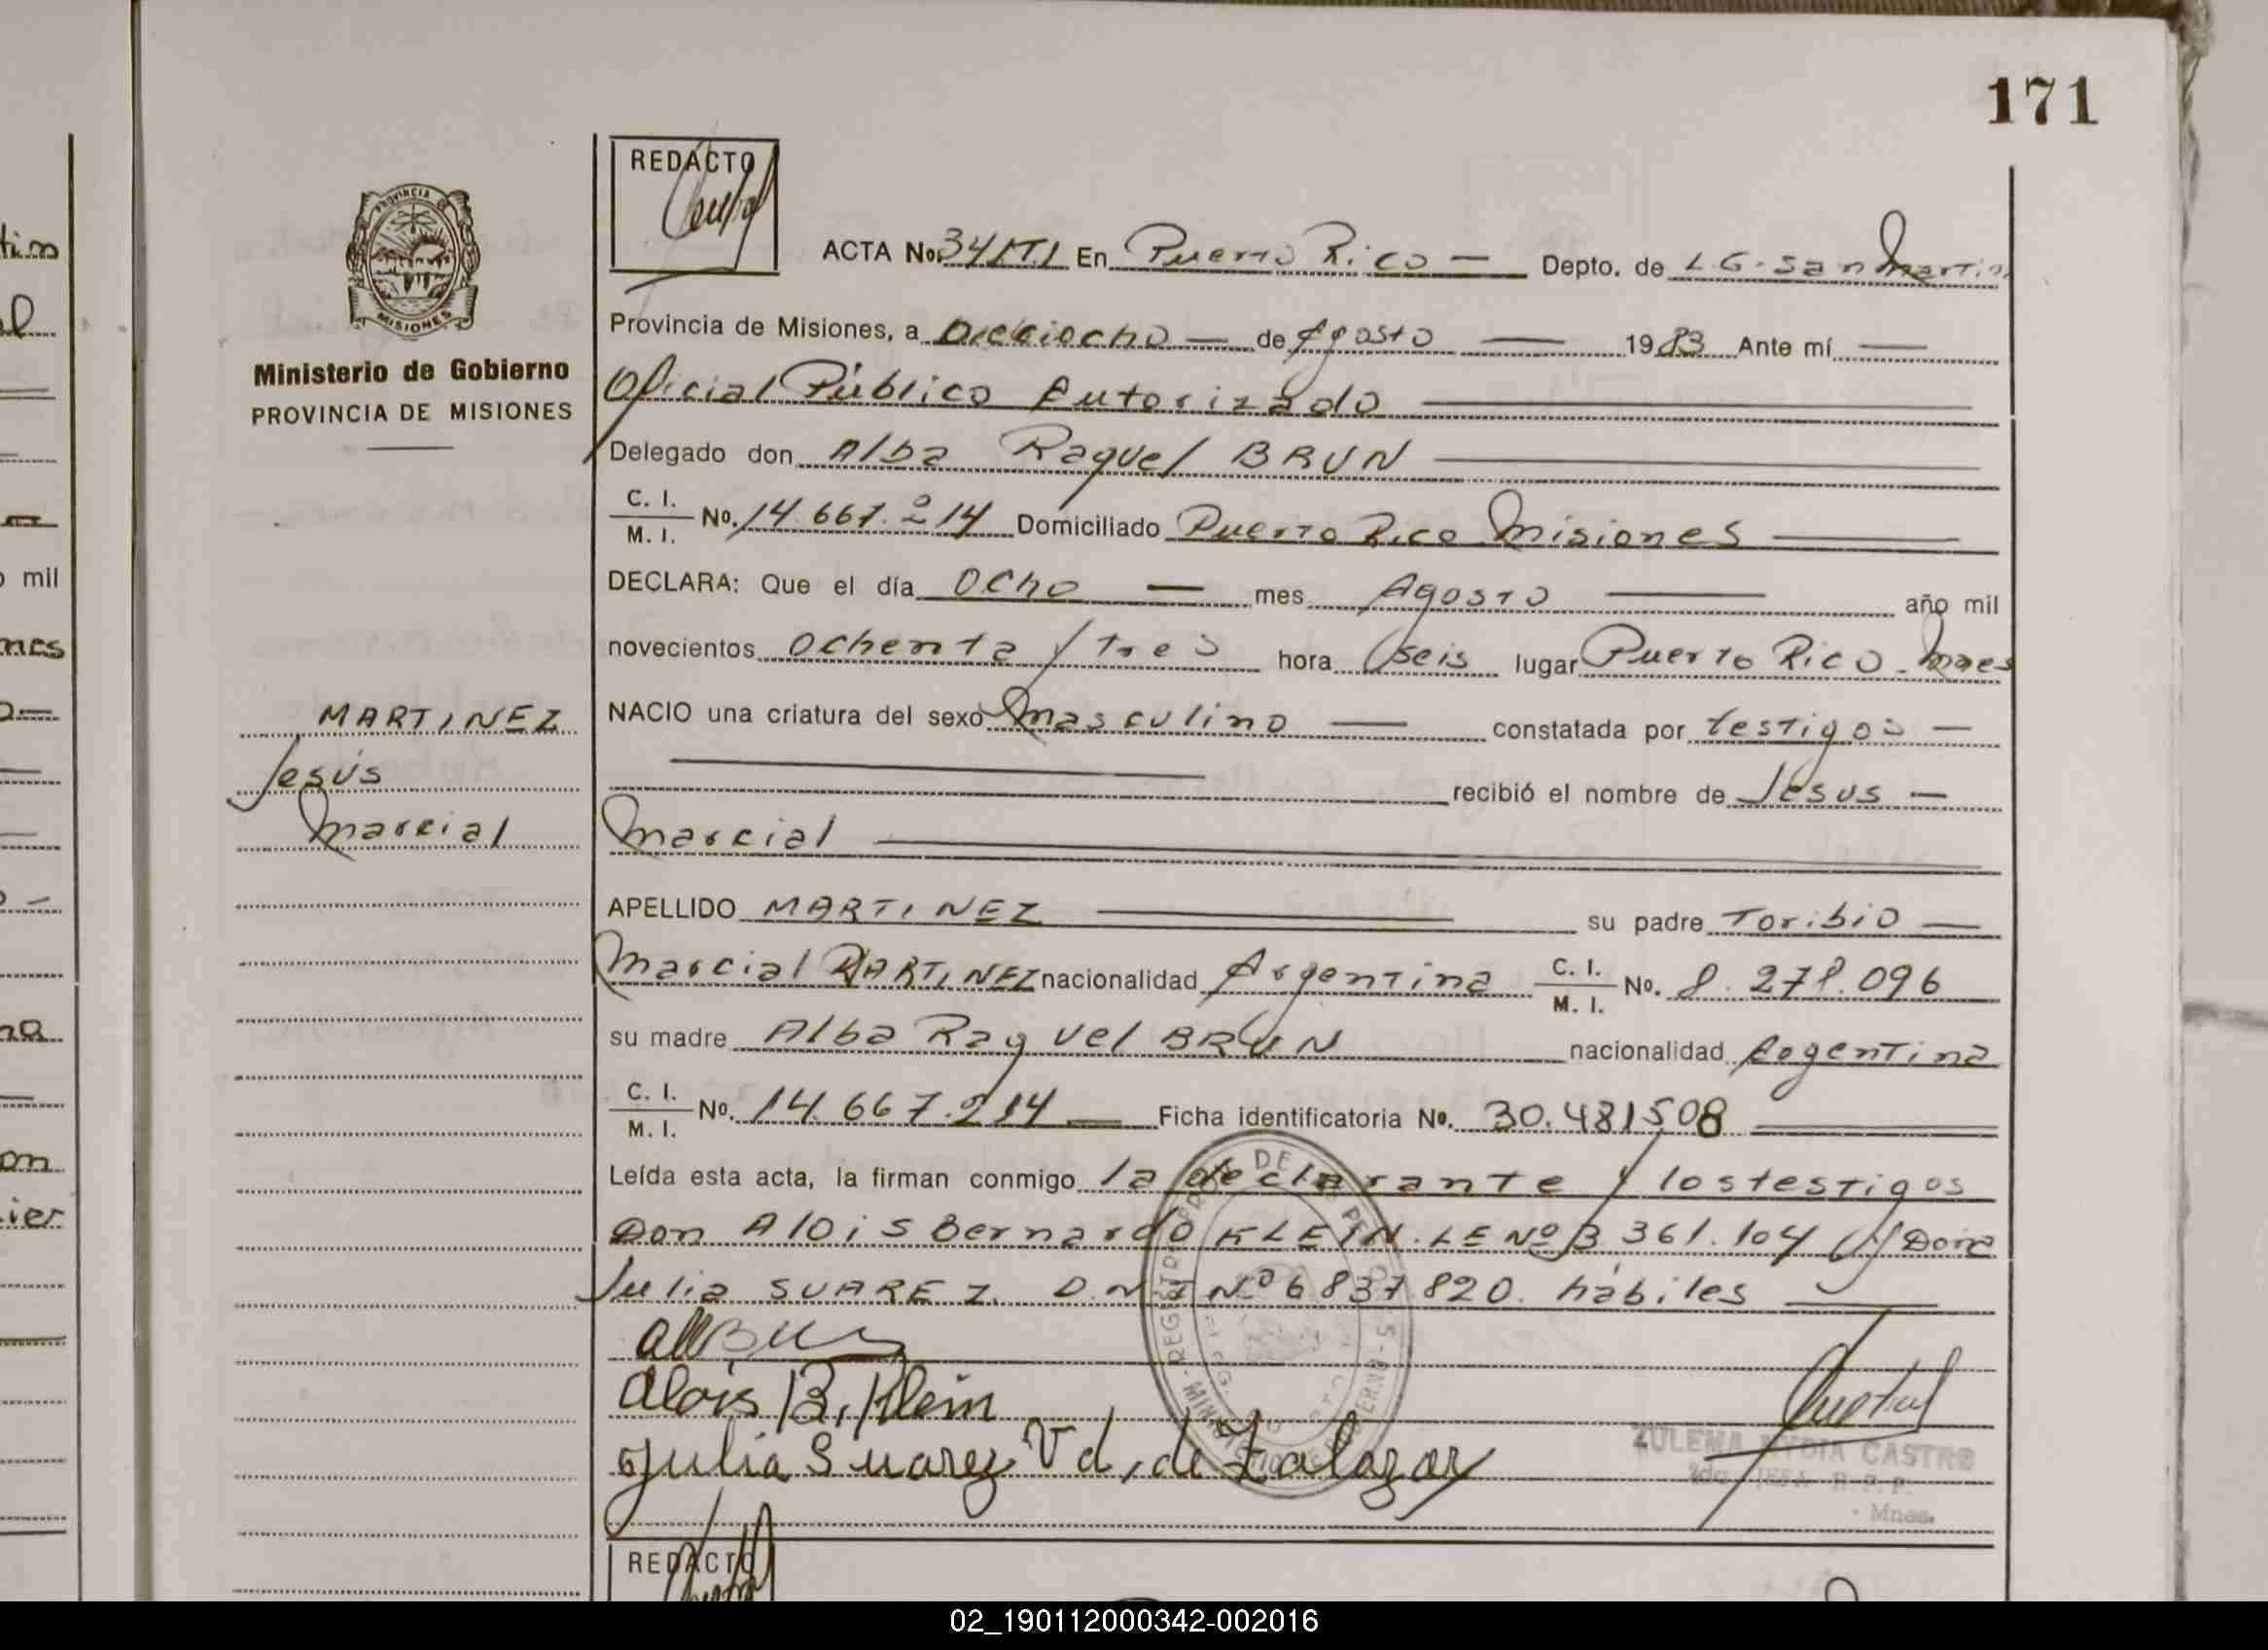 171
REDACTO
ACTA No. 34 T.I En Puerto Rico — Depto. de L.G. San Martin
PROVINCIA
MISIONES
Provincia de Misiones, a Dieciocho — de Agosto — 1983 Ante mí —
Ministerio de Gobierno
PROVINCIA DE MISIONES
Oficial Público Autorizado
Delegado don Alba Raquel BRUN
C. I.
M. I. No. 14.667.214 Domiciliado Puerto Rico Misiones
DECLARA: Que el día Ocho — mes Agosto — año mil
novecientos ochenta y tres hora seis lugar Puerto Rico - Mnes
MARTINEZ
Jesús
Marcial
NACIO una criatura del sexo masculino — constatada por testigos —
recibió el nombre de Jesus —
Marcial
APELLIDO MARTINEZ — su padre Toribio —
Marcial MARTINEZ nacionalidad Argentina C. I.
M. I. No. 8.278.096
su madre Alba Raquel BRUN nacionalidad Argentina
C. I.
M. I. No. 14.667.214 — Ficha identificatoria No. 30.481508
Leída esta acta, la firman conmigo la declarante y los testigos
Don Alois Bernardo KLEIN. LE Nº 3 361.104 y Dora
Julia SUAREZ D.N.I Nº 6 837 820. hábiles
Alois B. Klein
Julia Suarez Vd. de Zalazar
ZULEMA NYDIA CASTRO
2da. JEFA R.P.P.
- Mnes.
REDACTO
02_190112000342-002016